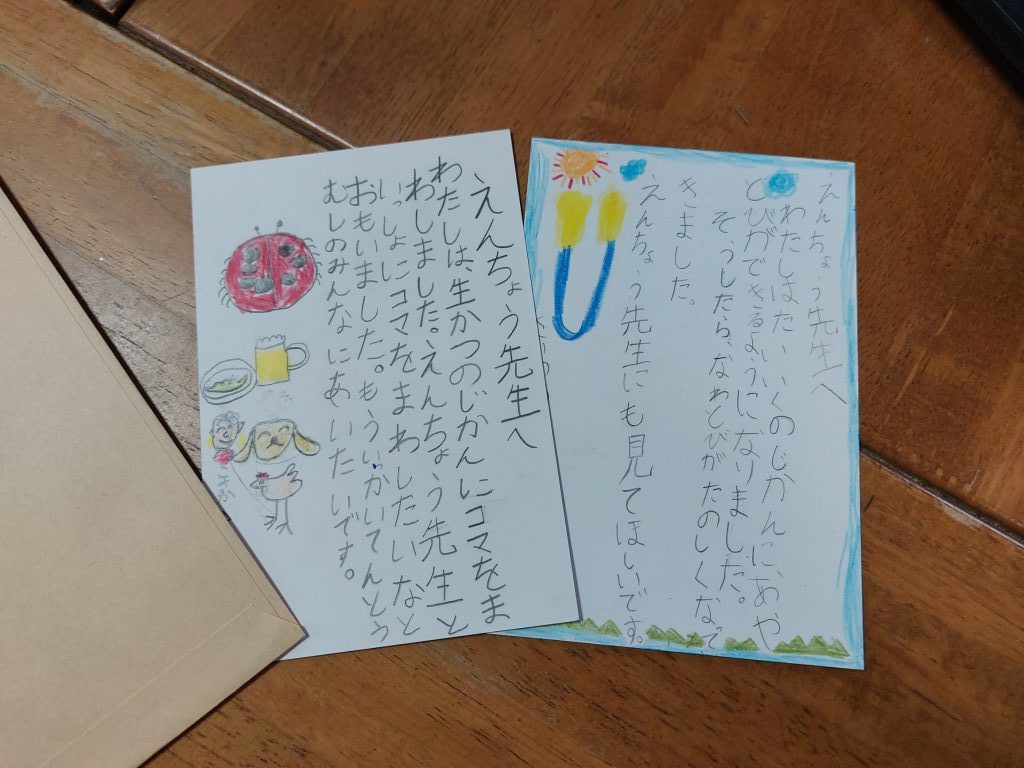 えんちょう先生へ
わたしはたいいくのじかんに、あや
とびができるようになりました。
そうしたら、なわとびがたのしくなって
きました。
えんちょう先生にも見てほしいです。
えんちょう先生へ
わたしは、生かつのじかんにコマをま
わしました。えんちょう先生と
いっしょにコマをまわしたいなと
おもいました。もういっかいてんとう
むしのみんなにあいたいです。